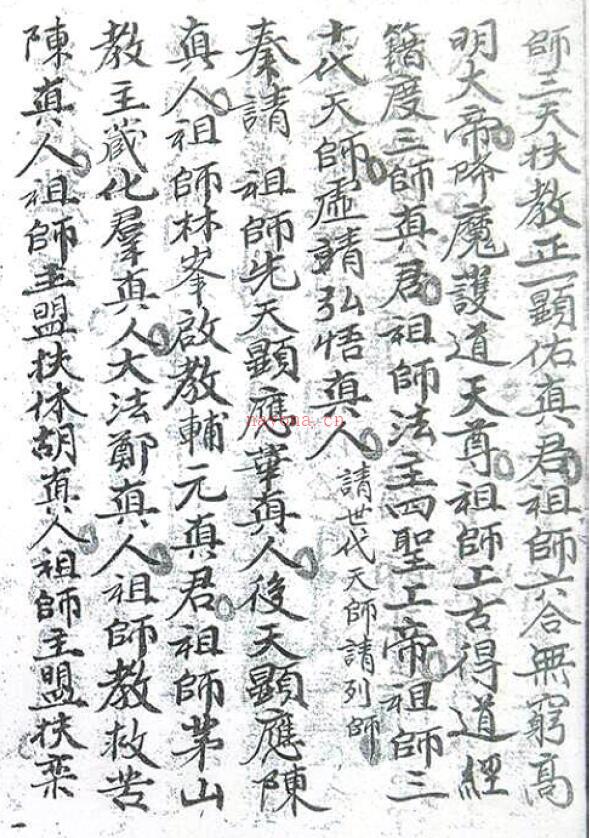 師三天扶教正一顯佑真君祖師六合無窮高
明大帝降魔護道天尊祖師上古得道經
籍度三師真君祖師法主四聖上帝祖師三
十代天師虛靖弘悟真人請世代天師請列師
奏請祖師先天顯應華真人後天顯應陳
真人祖師林峯啟教輔元真君祖師茅山
教主葳化羣真人大法鄭真人祖師教救苦
陳真人祖師主盟扶休胡真人祖師主盟扶栾
navona.cn